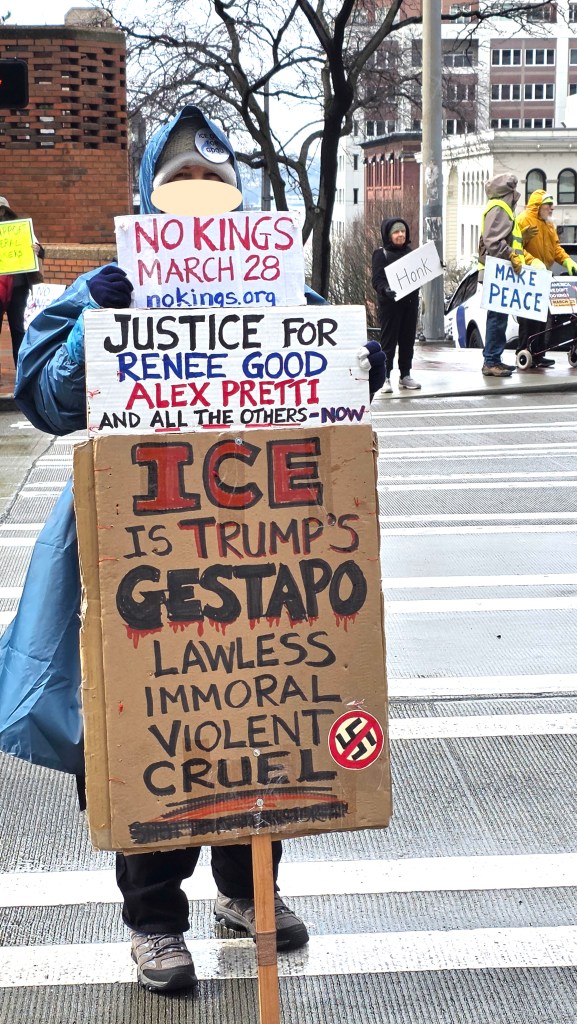 NO KINGS
MARCH 28
nokings.org
JUSTICE FOR
RENEE GOOD
ALEX PRETTI
AND ALL THE OTHERS-NOW
ICE
IS TRUMP'S
GESTAPO
LAWLESS
IMMORAL
VIOLENT
CRUEL
Honk
MAKE
PEACE